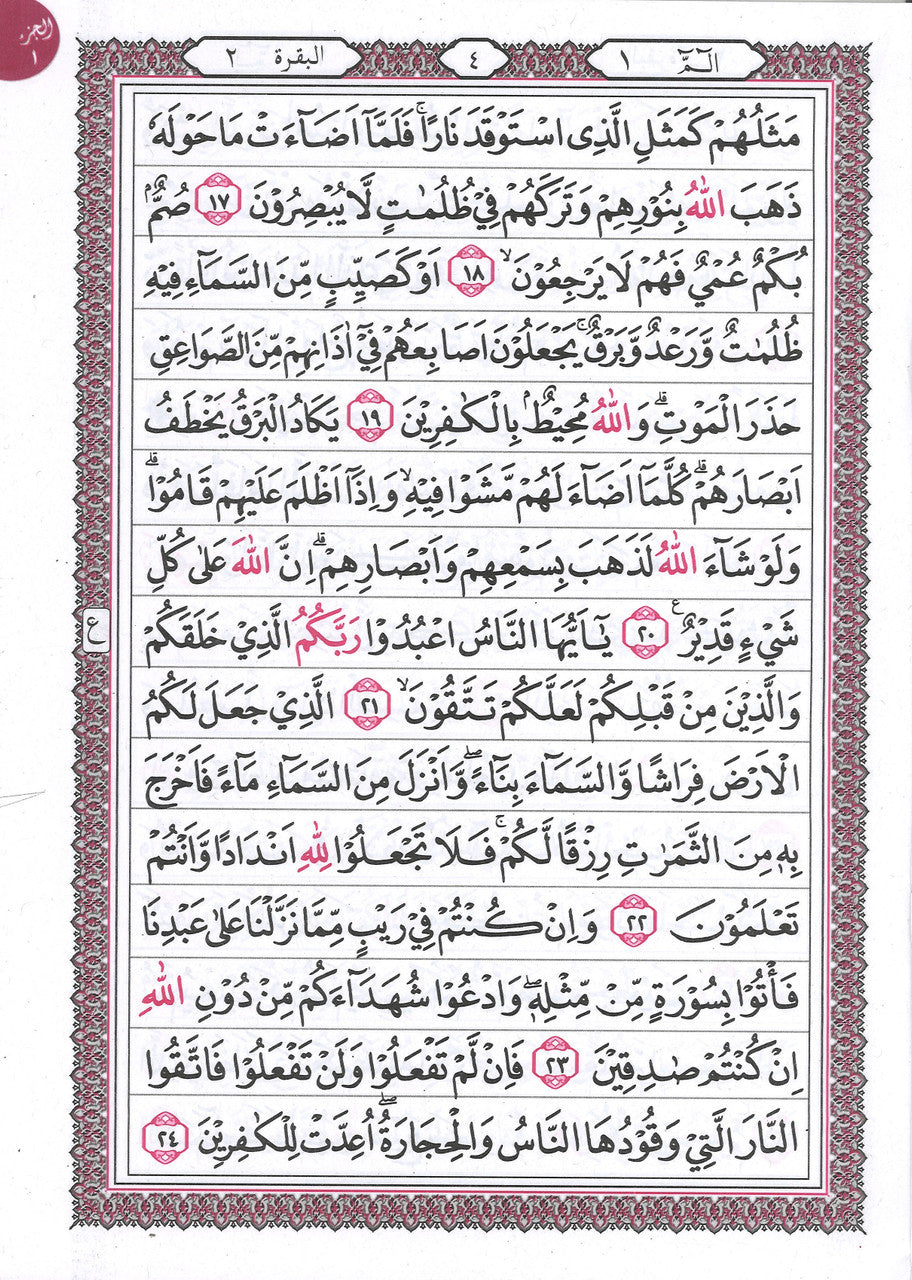 الجزء
١
الٓمّٓ ١
٤
البقرة ٢
مَثَلُهُمْ كَمَثَلِ الَّذِى اسْتَوْقَدَ نَارًا ۚ فَلَمَّآ اَضَآءَتْ مَا حَوْلَهٗ
ذَهَبَ اللّٰهُ بِنُوْرِهِمْ وَتَرَكَهُمْ فِيْ ظُلُمٰتٍ لَّا يُبْصِرُوْنَ ١٧ صُمٌّۢ
بُكْمٌ عُمْيٌ فَهُمْ لَا يَرْجِعُوْنَ ۙ ١٨ اَوْ كَصَيِّبٍ مِّنَ السَّمَآءِ فِيْهِ
ظُلُمٰتٌ وَّرَعْدٌ وَّبَرْقٌ ۚ يَجْعَلُوْنَ اَصَابِعَهُمْ فِيْٓ اٰذَانِهِمْ مِّنَ الصَّوَاعِقِ
حَذَرَ الْمَوْتِ ۗ وَاللّٰهُ مُحِيْطٌۢ بِالْكٰفِرِيْنَ ١٩ يَكَادُ الْبَرْقُ يَخْطَفُ
اَبْصَارَهُمْ ۗ كُلَّمَآ اَضَآءَ لَهُمْ مَّشَوْا فِيْهِ ۙ وَاِذَآ اَظْلَمَ عَلَيْهِمْ قَامُوْا ۗ
وَلَوْ شَآءَ اللّٰهُ لَذَهَبَ بِسَمْعِهِمْ وَاَبْصَارِهِمْ ۗ اِنَّ اللّٰهَ عَلٰى كُلِّ
شَيْءٍ قَدِيْرٌ ٢٠ ع يٰٓاَيُّهَا النَّاسُ اعْبُدُوْا رَبَّكُمُ الَّذِيْ خَلَقَكُمْ
ع
وَالَّذِيْنَ مِنْ قَبْلِكُمْ لَعَلَّكُمْ تَتَّقُوْنَ ۙ ٢١ الَّذِيْ جَعَلَ لَكُمُ
الْاَرْضَ فِرَاشًا وَّالسَّمَآءَ بِنَآءً ۖ وَّاَنْزَلَ مِنَ السَّمَآءِ مَآءً فَاَخْرَجَ
بِهٖ مِنَ الثَّمَرٰتِ رِزْقًا لَّكُمْ ۚ فَلَا تَجْعَلُوْا لِلّٰهِ اَنْدَادًا وَّاَنْتُمْ
تَعْلَمُوْنَ ٢٢ وَاِنْ كُنْتُمْ فِيْ رَيْبٍ مِّمَّا نَزَّلْنَا عَلٰى عَبْدِنَا
فَأْتُوْا بِسُوْرَةٍ مِّنْ مِّثْلِهٖ ۖ وَادْعُوْا شُهَدَآءَكُمْ مِّنْ دُوْنِ اللّٰهِ
اِنْ كُنْتُمْ صٰدِقِيْنَ ٢٣ فَاِنْ لَّمْ تَفْعَلُوْا وَلَنْ تَفْعَلُوْا فَاتَّقُوا
النَّارَ الَّتِيْ وَقُوْدُهَا النَّاسُ وَالْحِجَارَةُ ۖ اُعِدَّتْ لِلْكٰفِرِيْنَ ٢٤